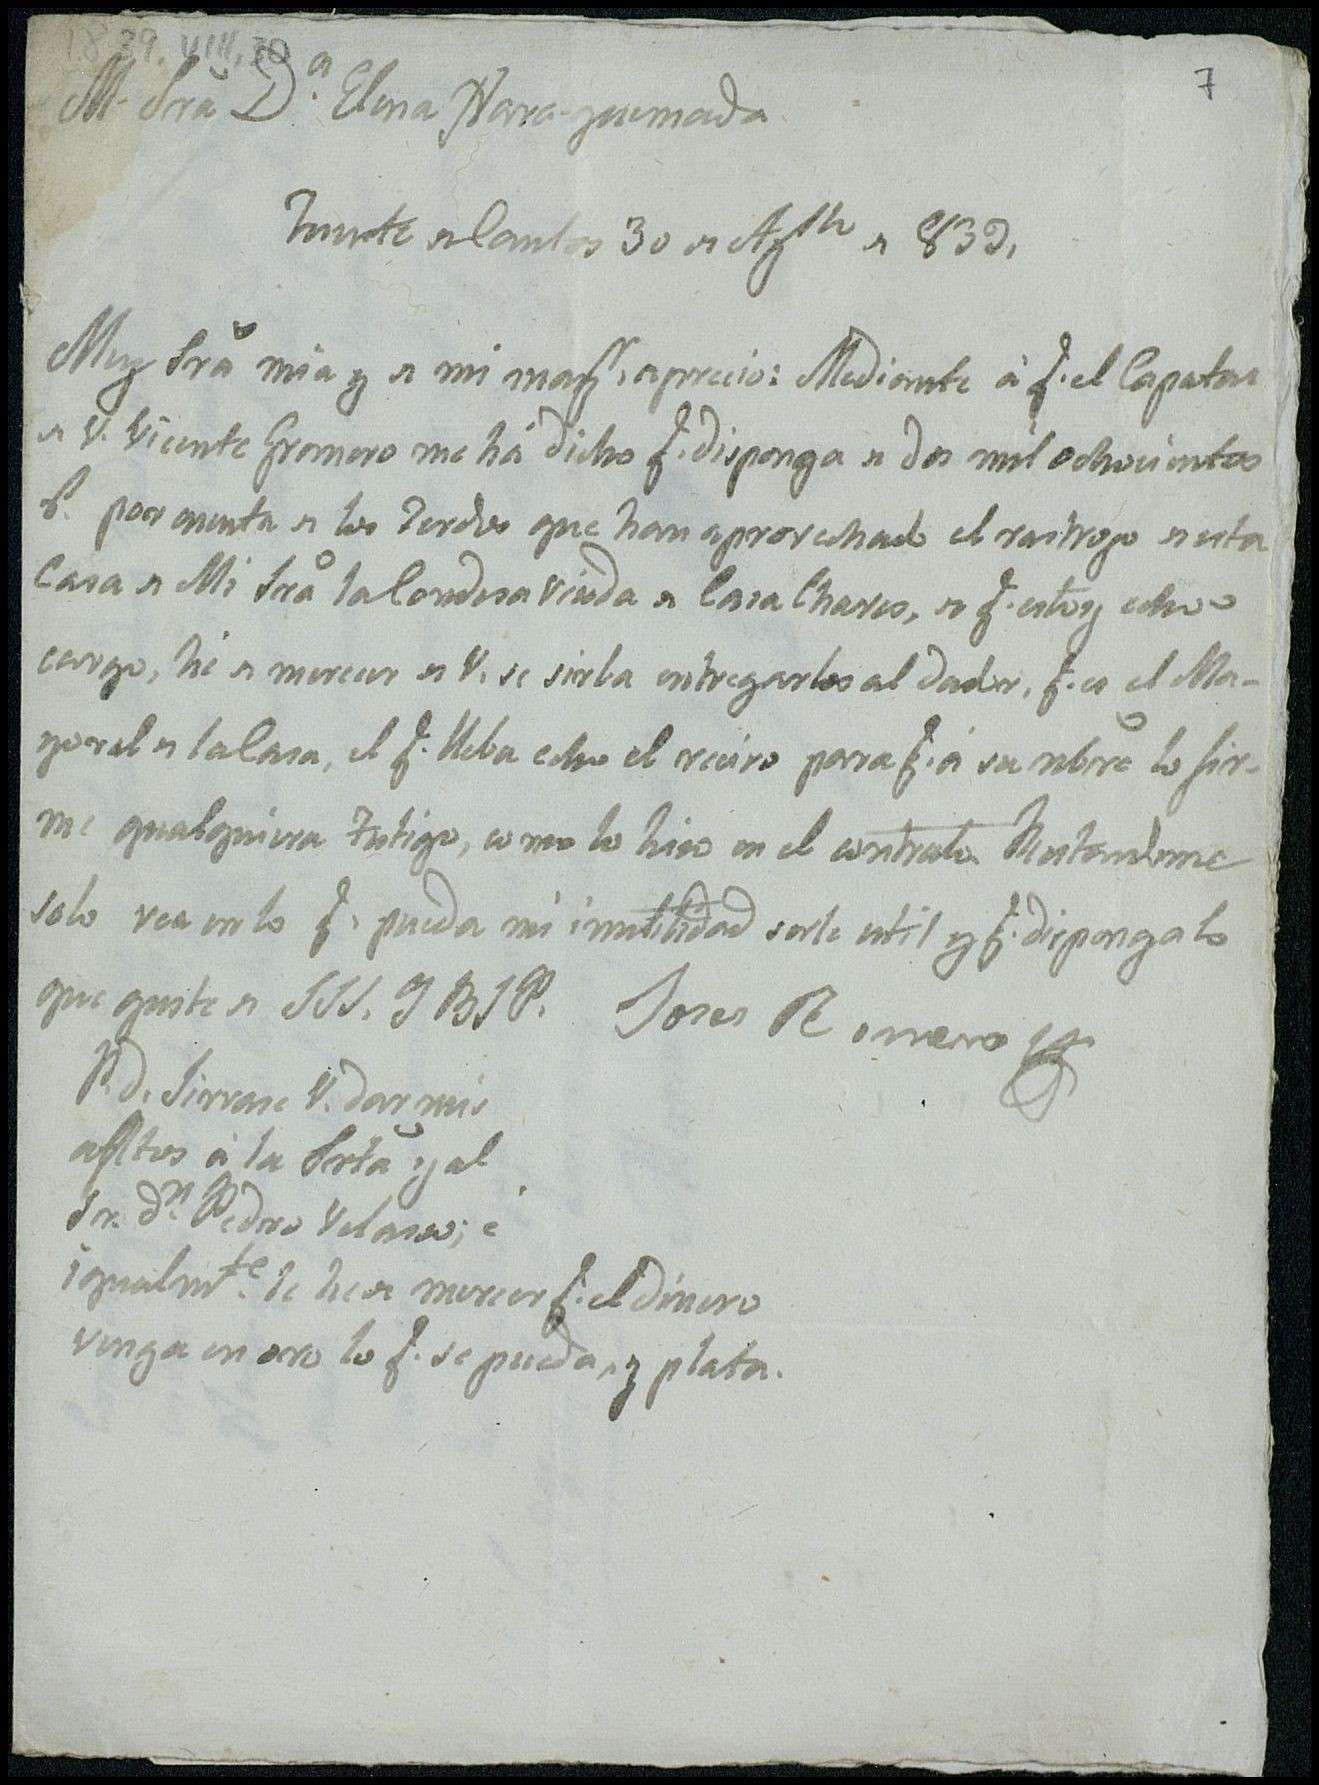 1839. VIII. 30
7
Mi Srã D.ª Elena Jarra-quemada
Fuente a Cantos 30 a Agto a 839.
Muy Srã mia y a mi mayr. aprecio: Mediante á q. el Capataz
a V. Vicente Gromero me há dicho q. disponga a dos mil ochocientos
r. por cuenta a los Cerdos que han aprovechado el rastrojo a esta
Casa a Mi Srã la Condesa Viuda a Casa Chaves, a q. estoy echo
cargo, hé a merecer a V. se sirba entregarlos al dador, q. es el Ma-
yoral a la Casa, el q. lleba echo el recivo para q. á su nbre lo fir-
me qualquiera testigo, como lo hizo en el contrato. Restandome
solo vea en lo q. pueda mi inutilidad serle util y q. disponga lo
que guste a SSS. Q B S P. Josef Romero
P.d. Sirvase V. dar mis
afctos á la Srtã y al
Sr. dn. Pedro Velasco; é
igualmte. le he a merecer q. el dinero
venga en oro lo q. se pueda, y plata.